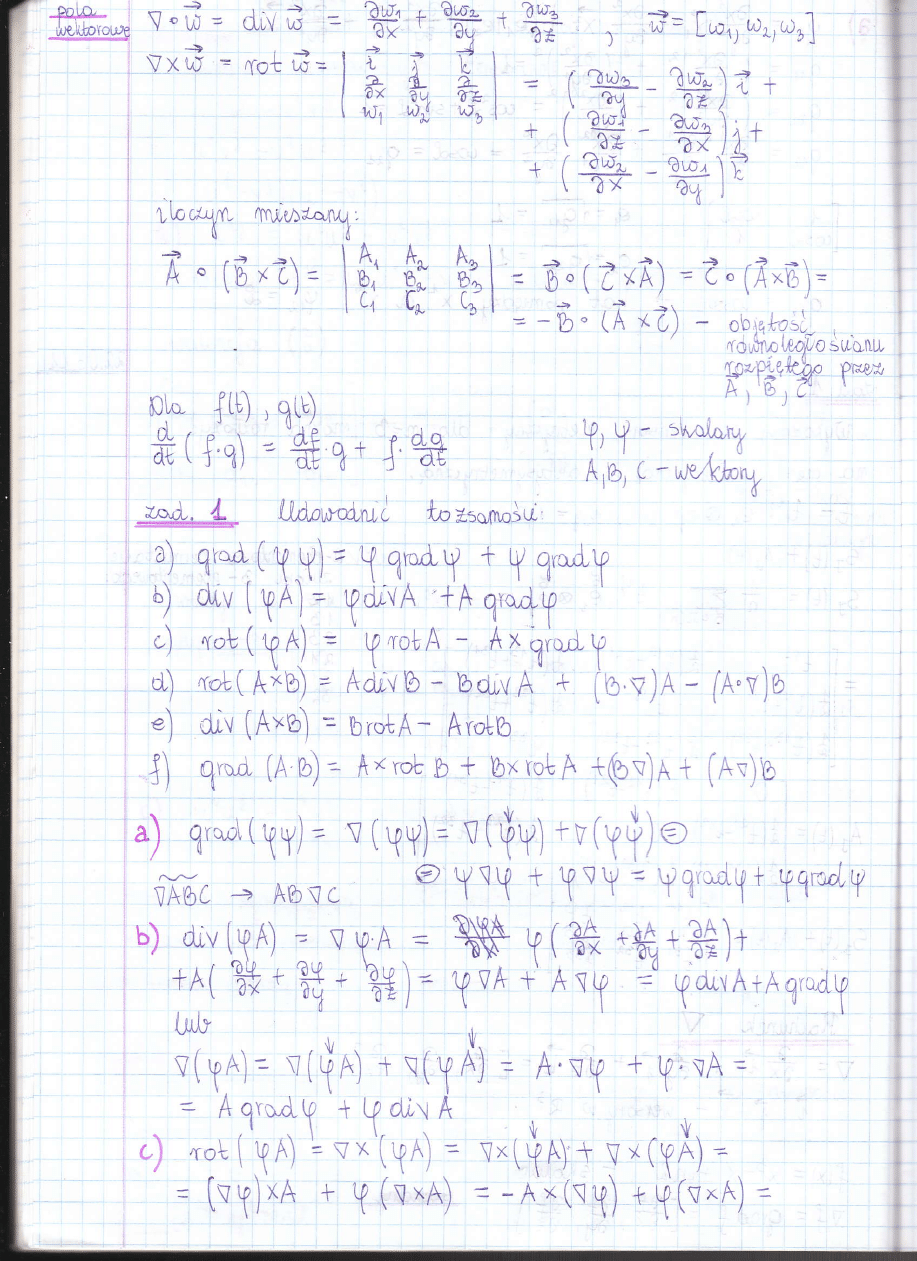 pola wektorowe
∇∘w⃗ = div w⃗ = ∂w₁/∂x + ∂w₂/∂y + ∂w₃/∂z , w⃗ = [w₁, w₂, w₃]
∇×w⃗ = rot w⃗ = | i⃗ j⃗ k⃗ ; ∂/∂x ∂/∂y ∂/∂z ; w₁ w₂ w₃ | = (∂w₃/∂y - ∂w₂/∂z) i⃗ +
+ (∂w₁/∂z - ∂w₃/∂x) j + 
+ (∂w₂/∂x - ∂w₁/∂y) k⃗
iloczyn mieszany:
A⃗ ∘ (B⃗ × C⃗) = | A₁ A₂ A₃ ; B₁ B₂ B₃ ; C₁ C₂ C₃ | = B⃗∘(C⃗×A⃗) = C⃗∘(A⃗×B⃗) =
= -B⃗∘(A⃗×C⃗) - objętość
równoległościanu
rozpiętego przez
A⃗, B⃗, C⃗
Dla f(t), g(t)
d/dt (f·g) = df/dt · g + f · dg/dt
φ, ψ - skalary
A, B, C - wektory
zad. 1 Udowodnić tożsamości:
a) grad(φψ) = φ gradψ + ψ gradφ
b) div(φA) = φdivA + A gradφ
c) rot(φA) = φrotA - A× gradφ
d) rot(A×B) = AdivB - BdivA + (B·∇)A - (A∘∇)B
e) div(A×B) = BrotA - ArotB
f) grad (A·B) = A×rot B + B×rot A + (B∇)A + (A∇)B
a) grad(φψ) = ∇(φψ) = ∇(φ↓ψ) + ∇(φψ↓) =
= ψ∇φ + φ∇ψ = ψgradφ + φgradψ
∇ABC → AB∇C
b) div(φA) = ∇φ·A = φ(∂A/∂x + ∂A/∂y + ∂A/∂z) +
+A(∂φ/∂x + ∂φ/∂y + ∂φ/∂z) = φ∇A + A∇φ = φdivA + A gradφ
lub
∇(φA) = ∇(φ↓A) + ∇(φA↓) = A·∇φ + φ·∇A =
= A gradφ + φ div A
c) rot(φA) = ∇×(φA) = ∇×(φ↓A) + ∇×(φA↓) =
= (∇φ)×A + φ(∇×A) = -A×(∇φ) + φ(∇×A) =